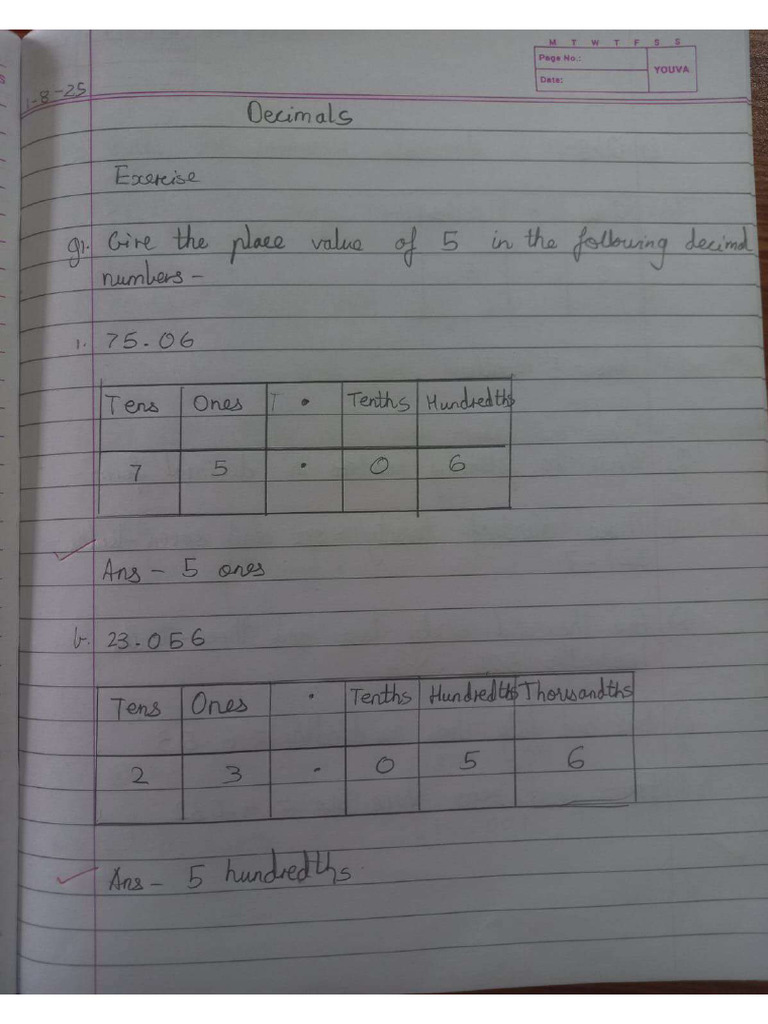 M T W T F S S
Page No.:
Date:
YOUVA
1-8-25
Decimals
Exercise
Q1. Give the place value of 5 in the following decimal
numbers -
1. 75.06
Tens Ones T . Tenths Hundredths
7 5 . 0 6
Ans - 5 ones
b. 23.056
Tens Ones . Tenths Hundredths Thousandths
2 3 . 0 5 6
Ans - 5 hundredths.